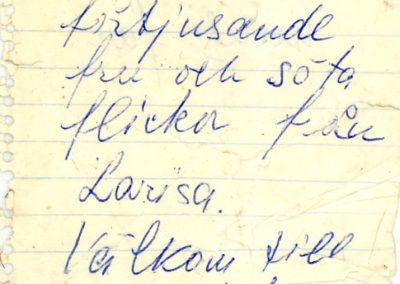 förtjusande
fru och söta
flickor från
Larisa.
Välkom till